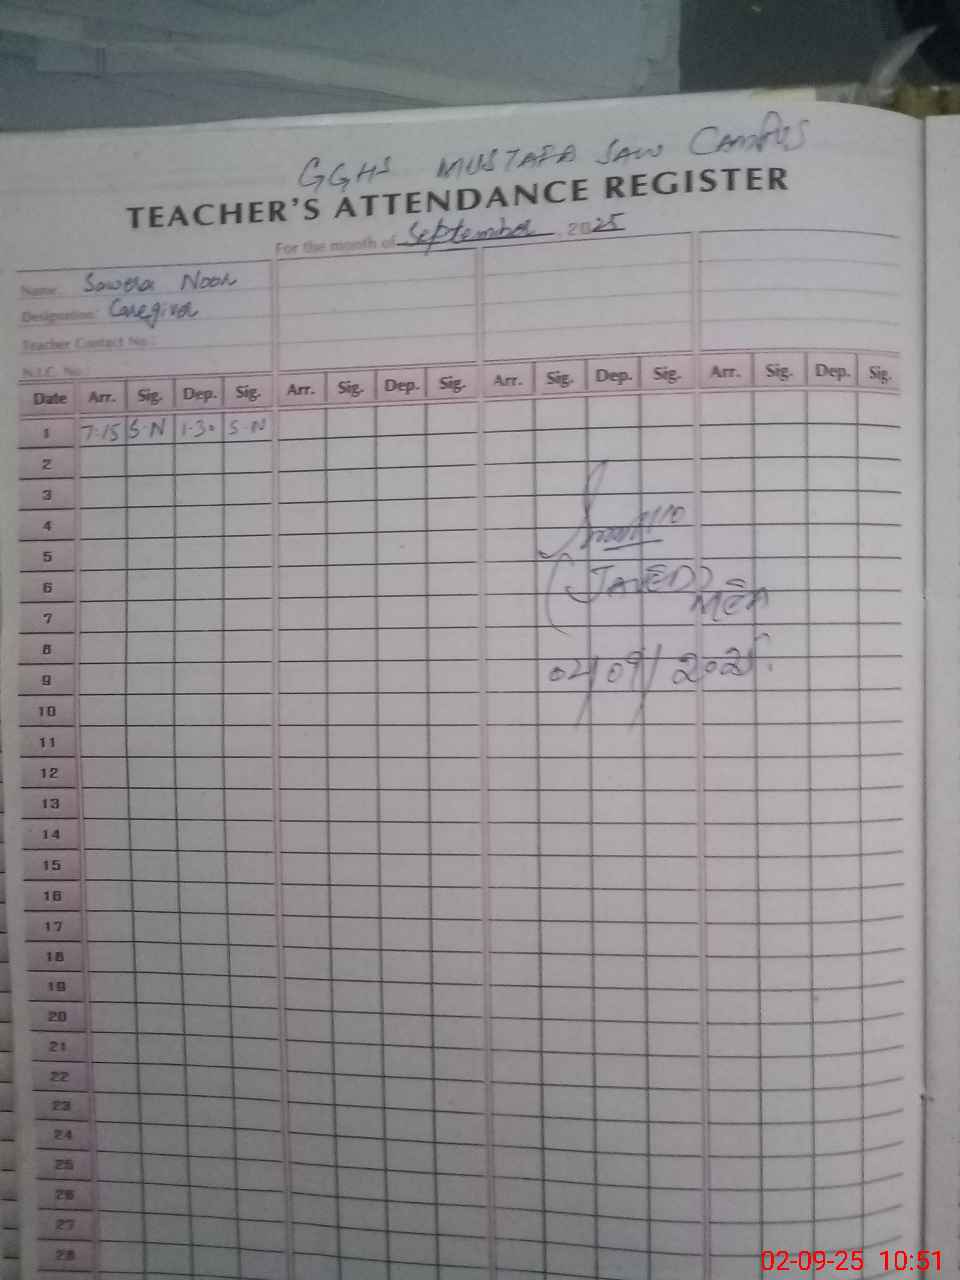 GGHS MUSTAFA SAW CAMPUS
TEACHER'S ATTENDANCE REGISTER
For the month of September 2025
Name: Sawera Noor
Designation: Caregiver
Teacher Contact No.:
N.I.C. No.:
Date Arr. Sig. Dep. Sig. Arr. Sig. Dep. Sig. Arr. Sig. Dep. Sig. Arr. Sig. Dep. Sig.
1 7:15 S.N 1-30 S.N
2
3
4
5
6 (JAVED)
7 MEA
8
9 02/09/2025.
10
11
12
13
14
15
16
17
18
19
20
21
22
23
24
25
26
27
28
02-09-25 10:51